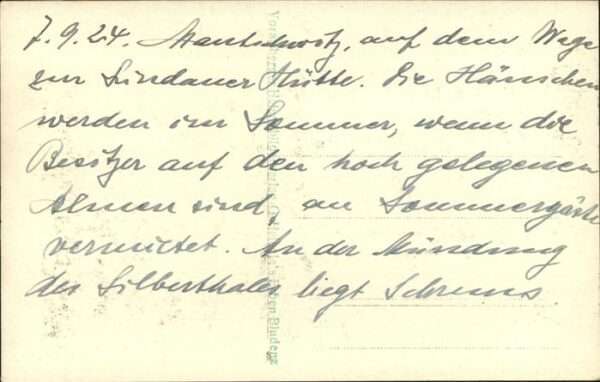 7.9.24. auf dem Wege
zur Lindauer Hütte. Die Häuschen
werden im Sommer, wenn die
Besitzer auf den hoch gelegenen
Almen sind, an Sommergäste
vermietet. An der Mündung
des Silberthales liegt Schruns.
Bludenz